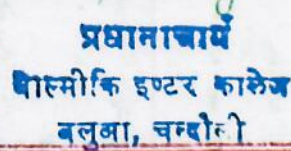 प्रधानाचार्य
बाल्मीकि इण्टर कालेज
बलुआ, चन्दौली